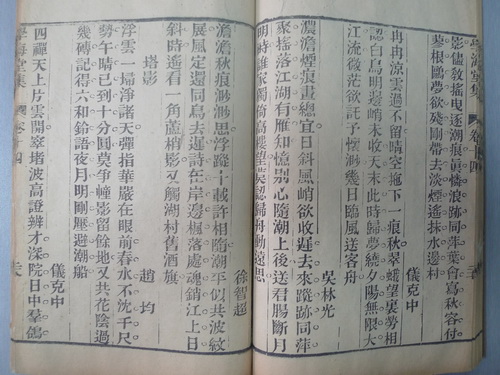 學海堂集
影儘教搖曳逐潮痕莫憐浪跡同萍葉會寫秋容付
蓼根鷗夢欲殘剛帶去淡煙遙抹水邊村
儀克中
冉冉涼雲過不留晴空拖下一痕秋翠蛾望裏勞相
認白鳥明邊峭未收天末此時歸夢繞夕陽無限大
江流微茫欲託予懷渺幾日臨風送客舟
吳林光
濃澹煙痕畫總宜日斜風峭欲收遲去來蹤跡同萍
聚搖落江湖有雁知憶別心隨潮上後送君腸斷月
明時誰家獨倚高樓望莫認歸舟動遠思
徐智超
澹澹秋痕渺渺思浮蹤十載許相隨潮平似共波紋
展風定還同鳥去遲詩在岸邊楓落處魂銷江上日
斜時遙看一角蘆梢影又觸湖村舊酒旗
塔影
趙均
浮雲一埽淨諸天彈指華嚴在眼前春水不沈千尺
勢午晴已到十分圓莫爭幢影留餘地又共花陰過
幾磚記得六和鈴語夜月明剛壓避潮船
儀克中
四禪天上片雲開窣堵波高證辨才深院日中羣鴿
學海堂集 卷十四